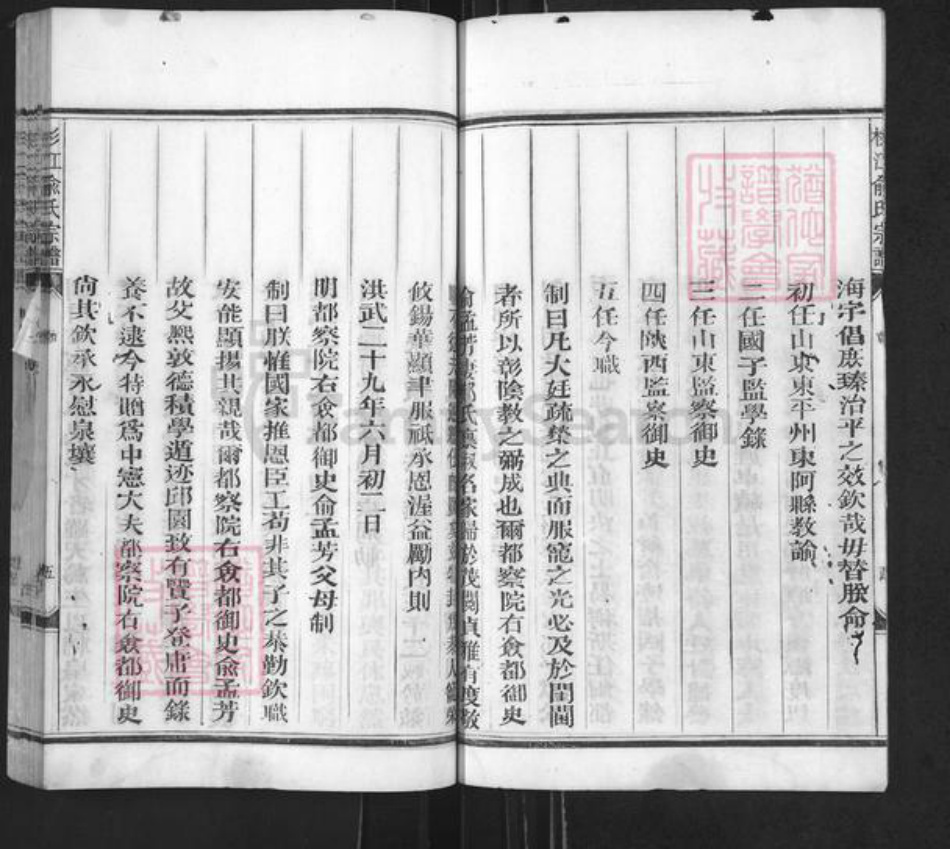 海宇倡庶臻治平之效欽哉毋替朕命
初任山東東平州東阿縣教諭
二任國子監學錄
三任山東監察御史
四任陝西監察御史
五任今職
制曰凡大廷疏榮之典而服寵之光必及於閨閫
者所以彰陰教之弼成也爾都察院右僉都御史
俞孟芳妻 氏 名家歸於茂閥貞雅有度敬
攸錫華顯聿服祗承恩渥益勵內則
洪武二十九年六月初二日
明都察院右僉都御史俞孟芳父母制
制曰朕惟國家推恩臣工苟非其子之恭勤欽職
安能顯揚其親哉爾都察院右僉都御史俞孟芳
故父 敦德積學遁迹邱園致有賢子登庸而祿
養不逮今特贈爲中憲大夫都察院右僉都御史
尙其欽承永慰泉壤
俞氏宗譜